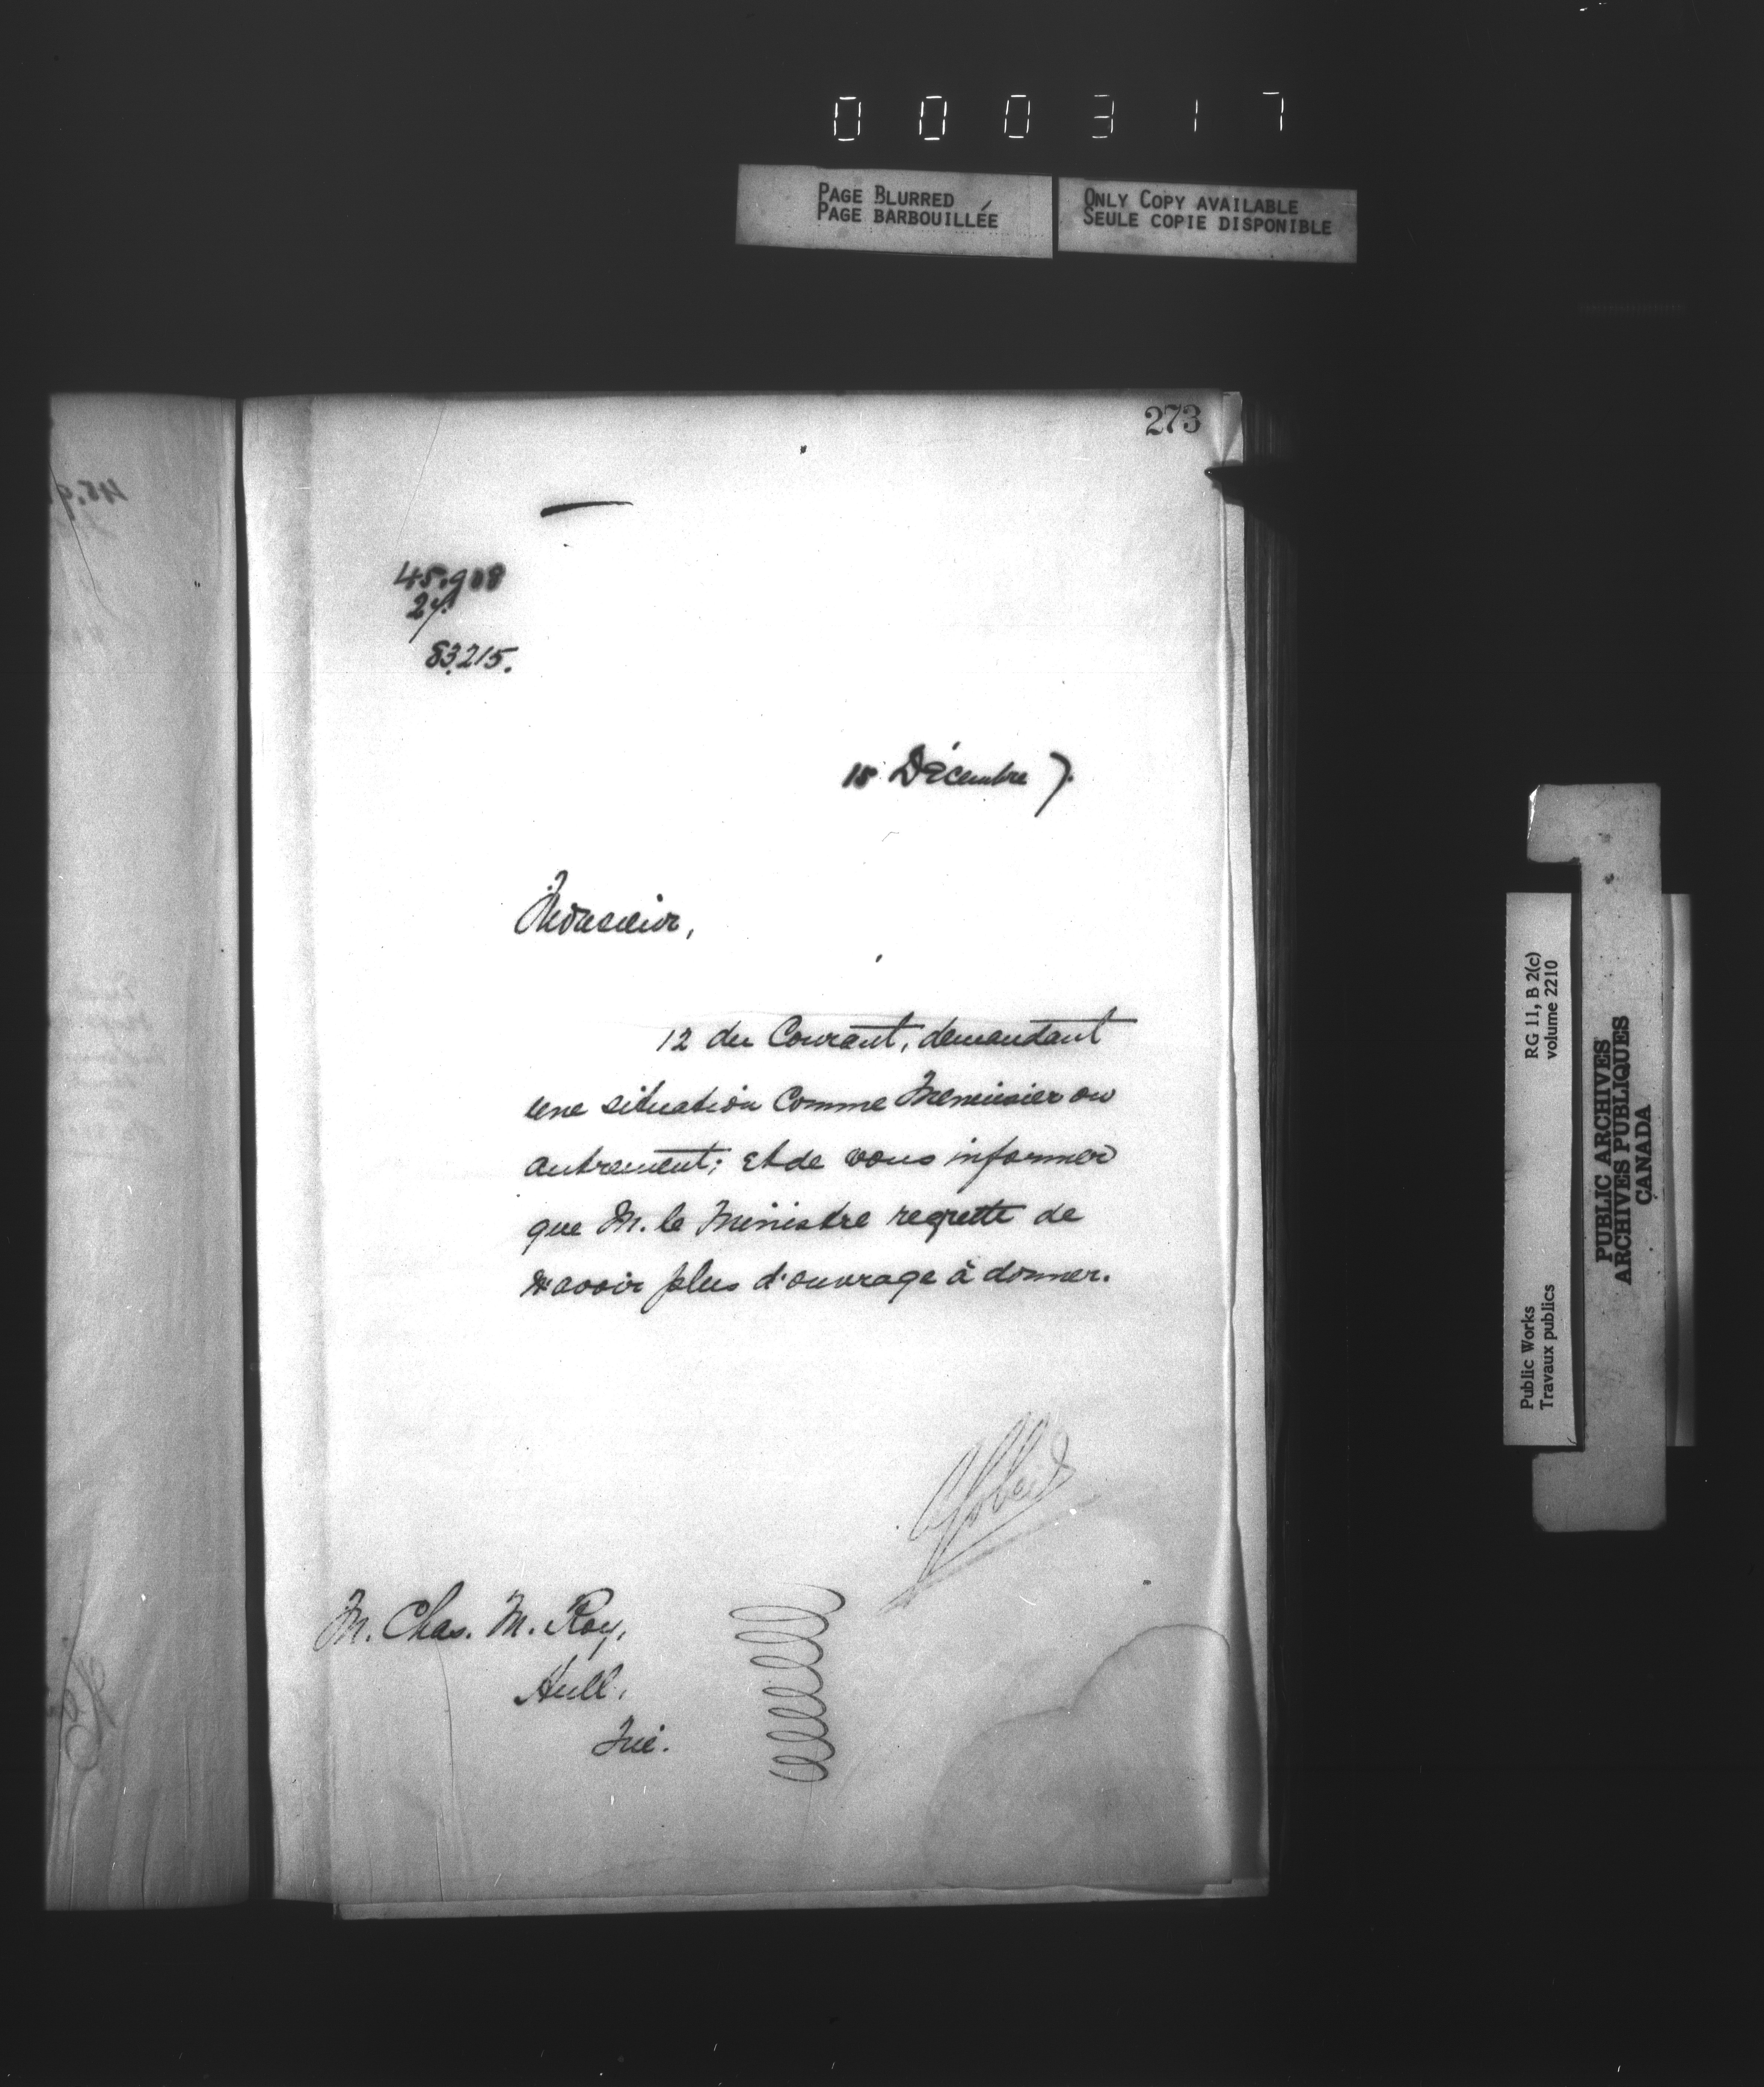 000317
PAGE BLURRED
PAGE BARBOUILLÉE
ONLY COPY AVAILABLE
SEULE COPIE DISPONIBLE
273
45.908
83.215.
15 Décembre 7.
Monsieur,
12 du Courant, demandant
une situation comme Menuisier ou
autrement; et de vous informer
que M. le Ministre regrette de
n'avoir plus d'ouvrage à donner.
M. Chas. M. Roy,
Hull,
RG 11, B 2(c)
volume 2210
Public Works
Travaux publics
PUBLIC ARCHIVES
ARCHIVES PUBLIQUES
CANADA